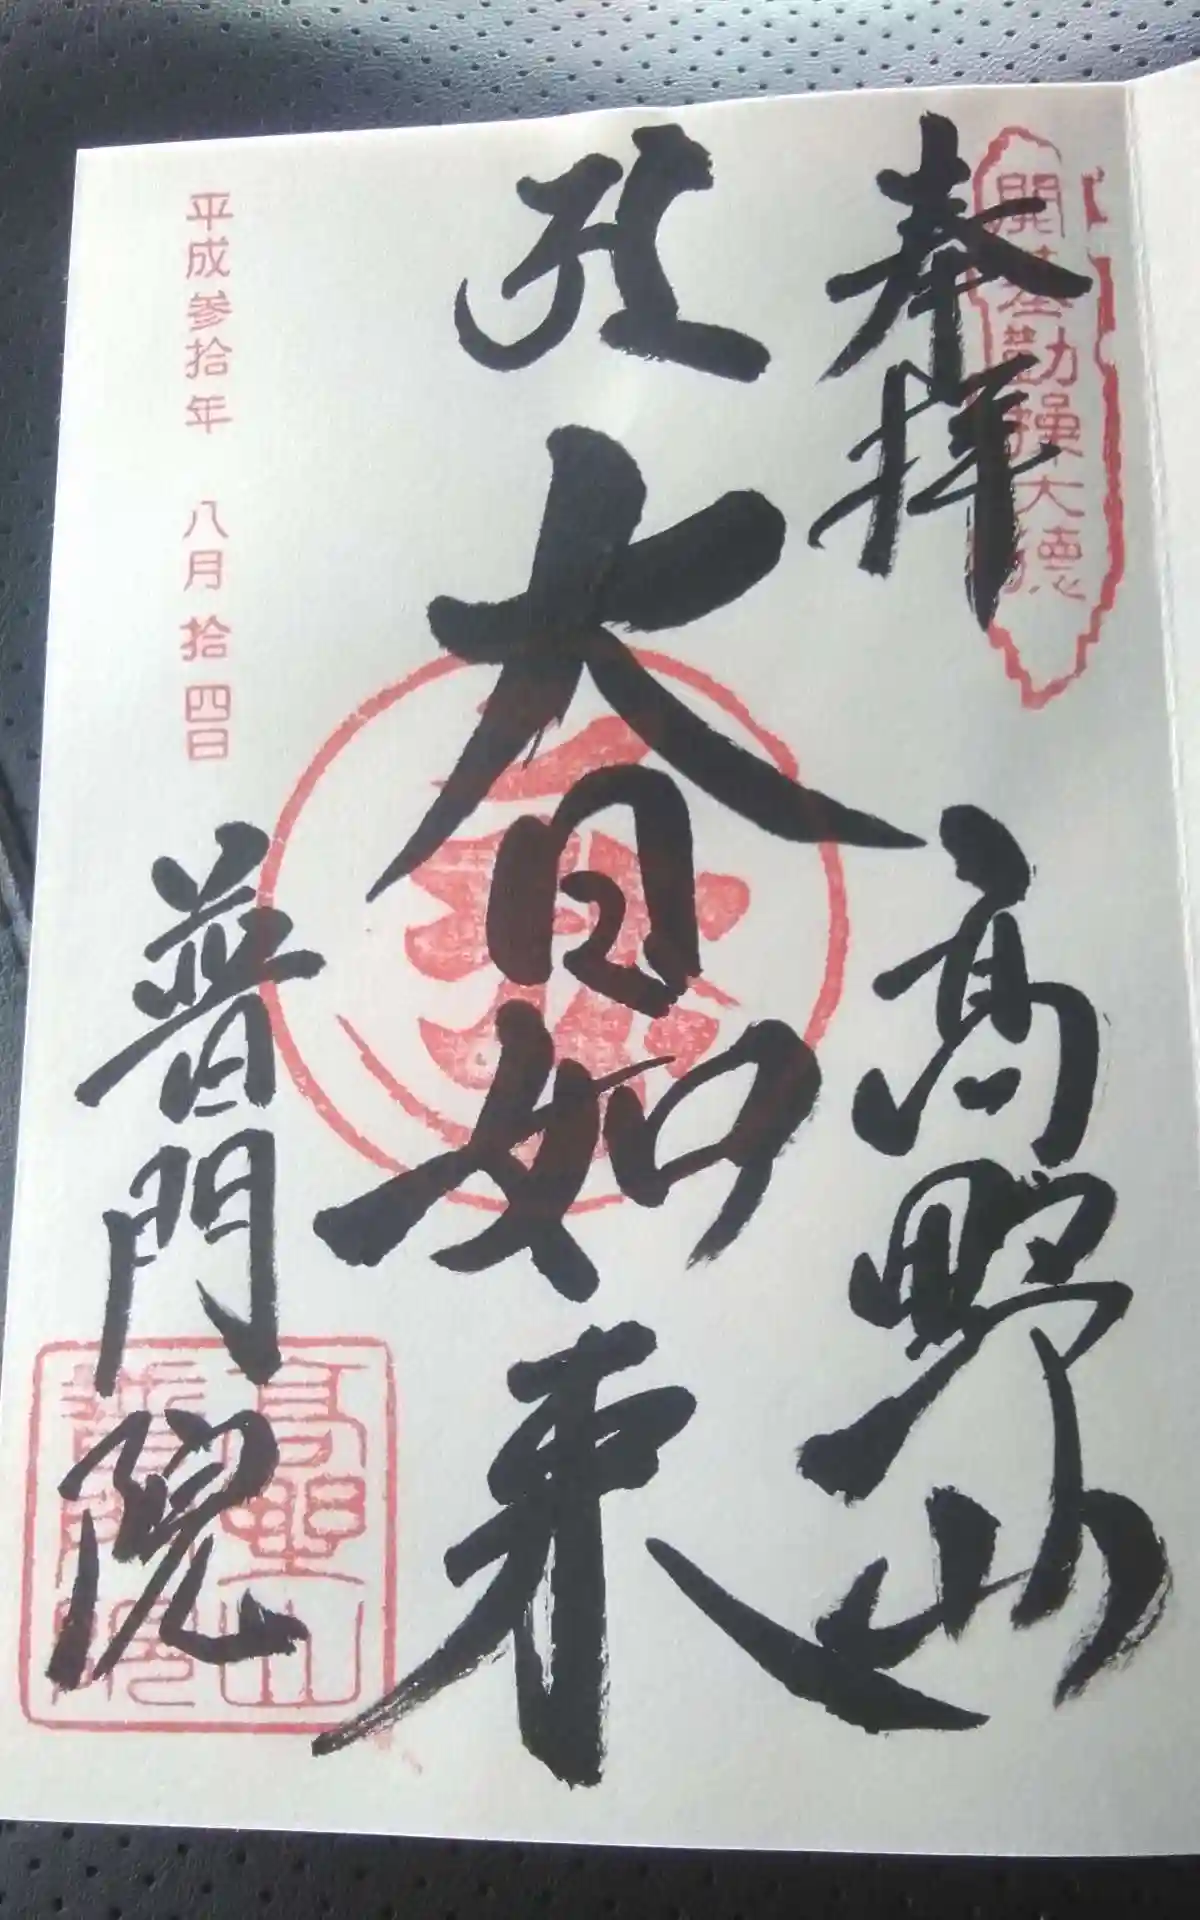 奉拝
高野山
開基勤操大徳
大日如来
普門院
平成参拾年 八月拾四日
高野山
普門院